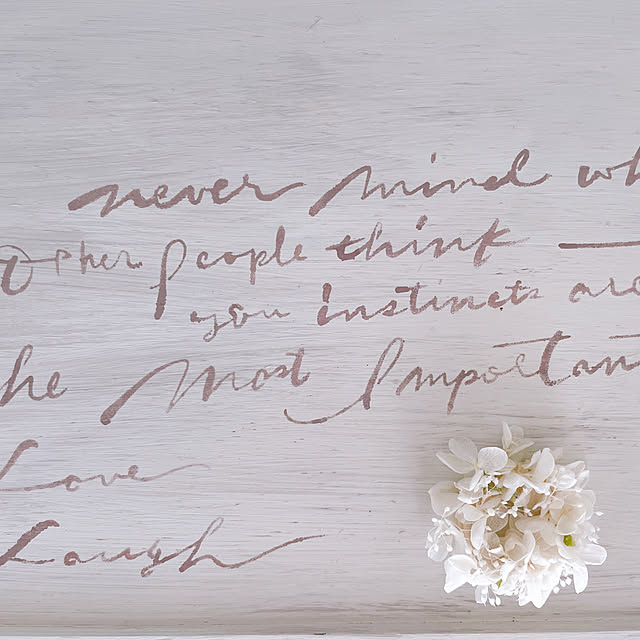 never mind wh
other people think —
you instincts are
he most Important
Love
Laugh